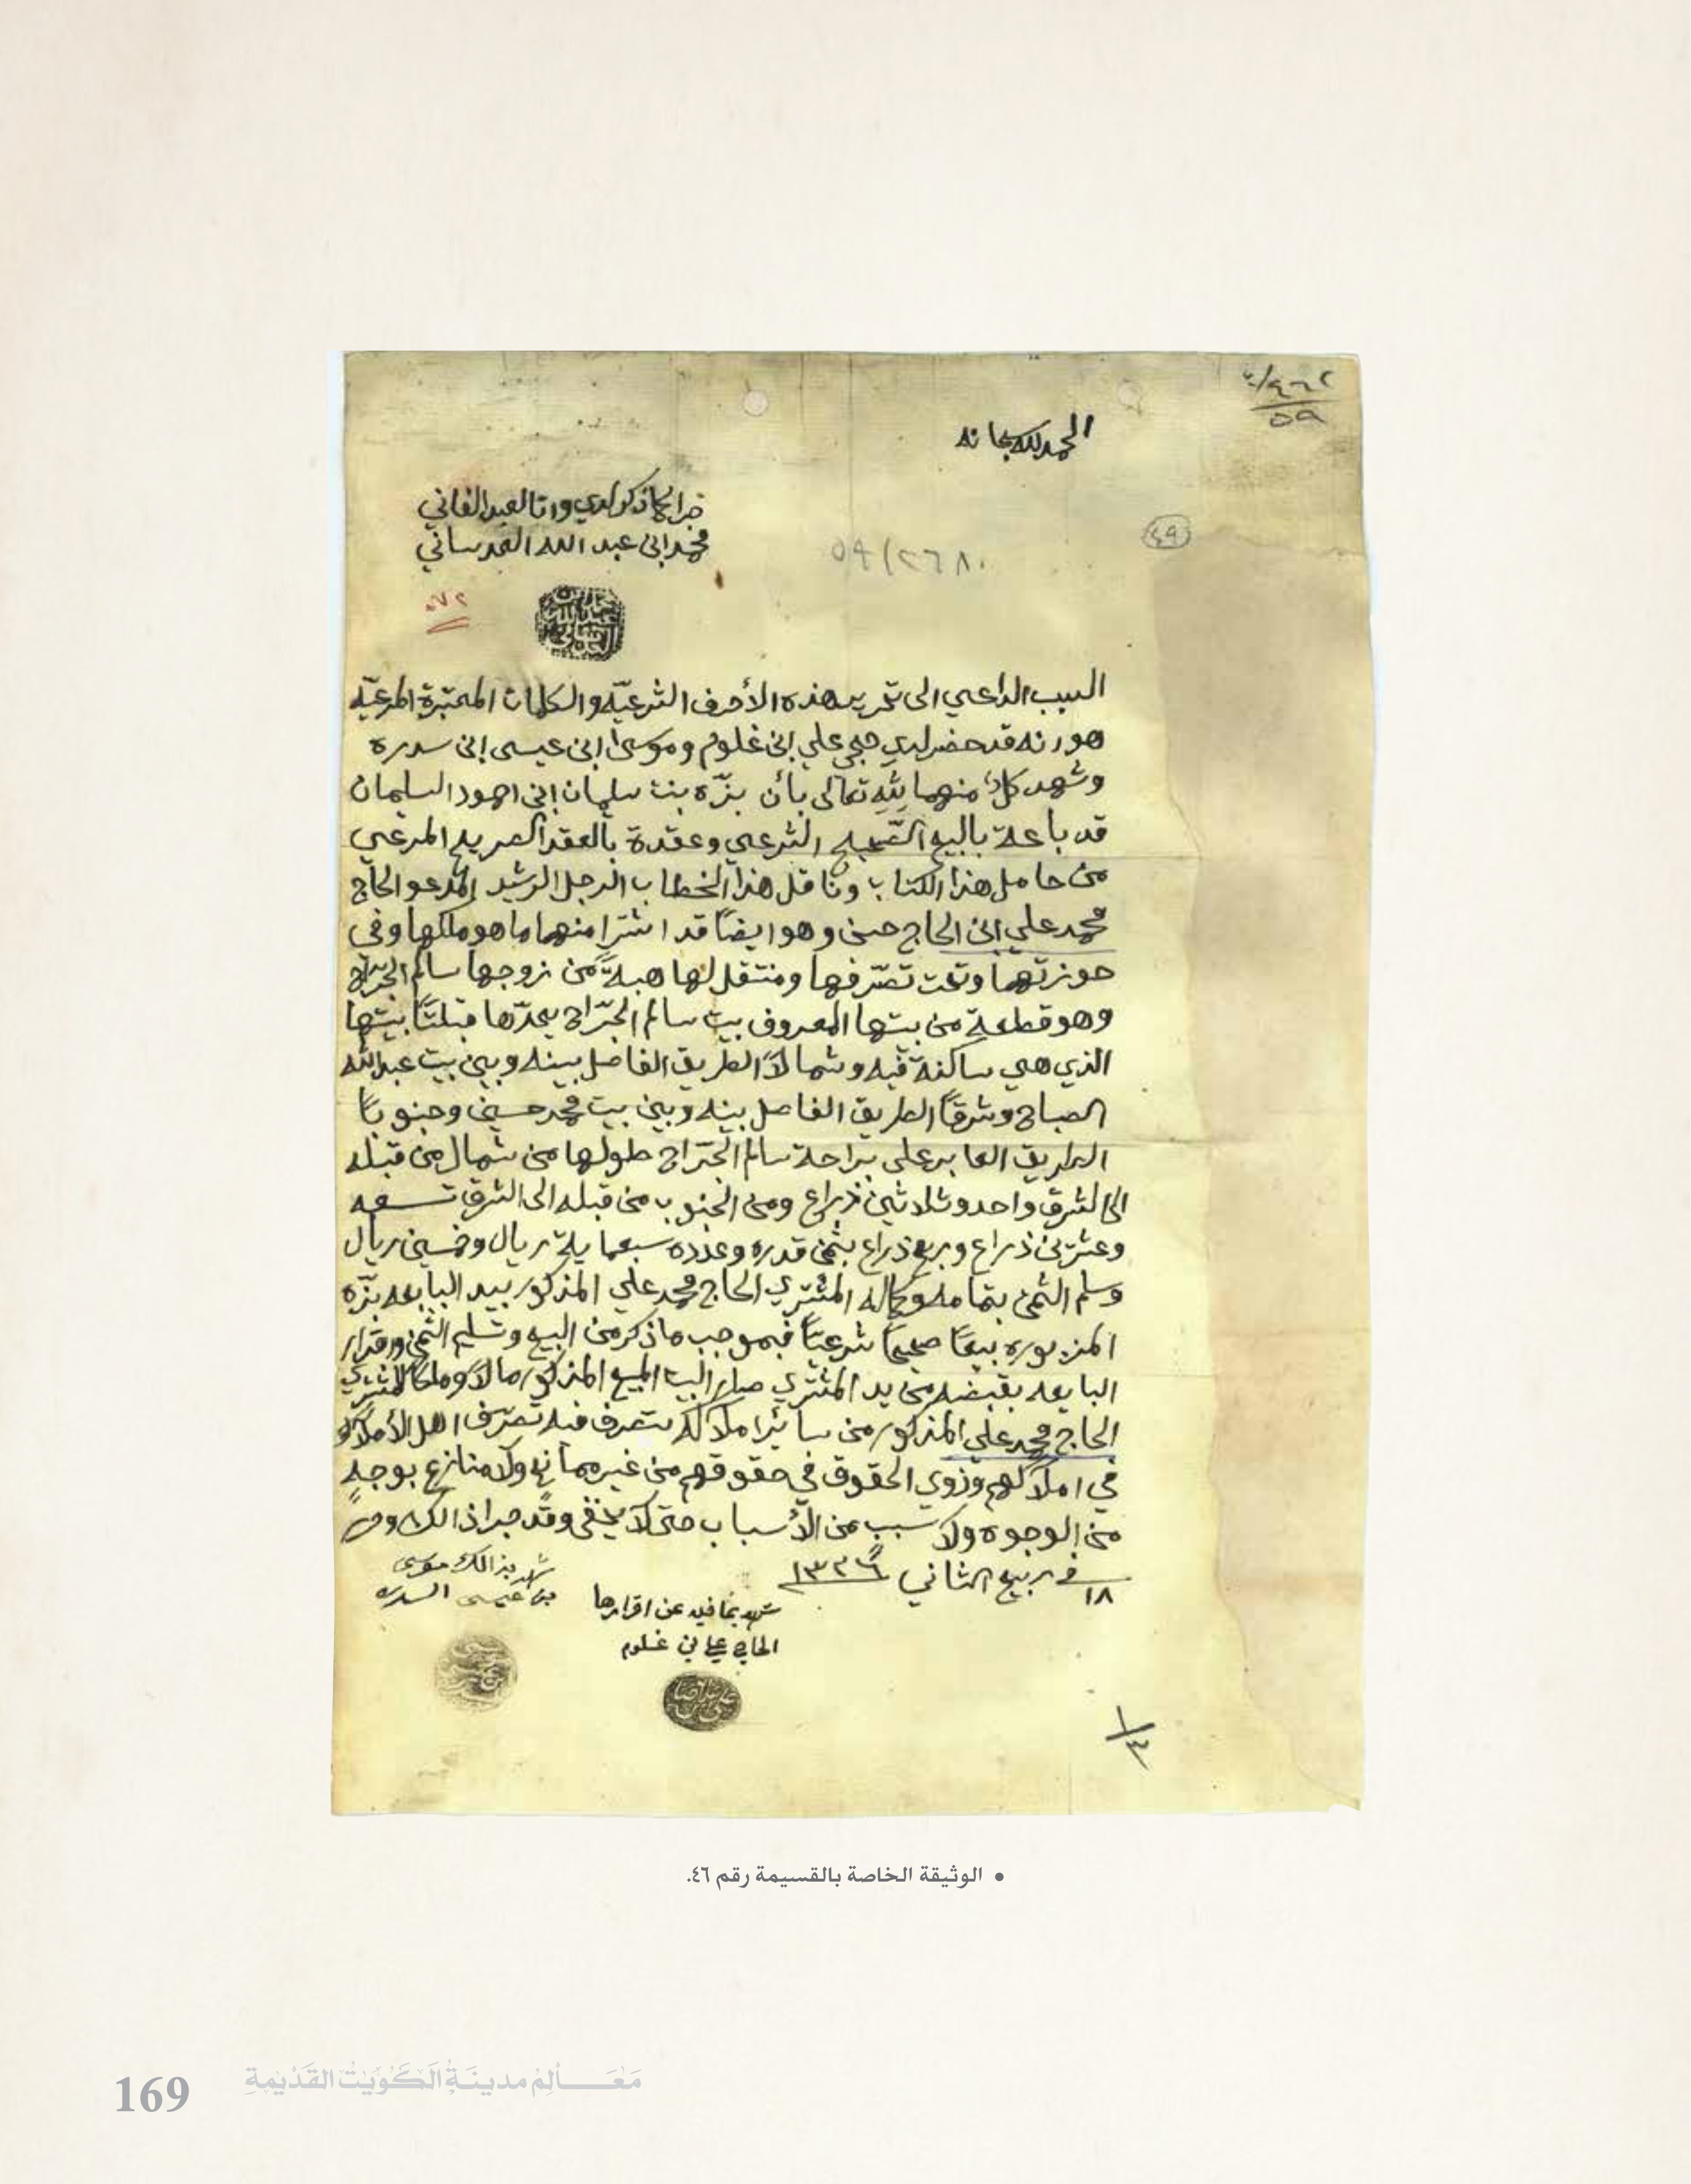 ٤٦٢/٢
٥٩
الحمد لله سبحانه
جرا كما ذكر لدي وانا العبد الفاني
محمد ابن عبد الله العدساني
٤٩
٥٩/٢٦٨٠
٥٧٢
السبب الداعي الى تحرير هذه الأحرف الشرعيّه والكلمات المعتبرة المرعيّه
هو انه قد حضر لدي حجي علي ابن غلوم وموسى ابن عيسى ابن سدره
وشهد كلٌ منهما لله تعالى بأن بزّه بنت سلمان ابن احمود السلمان
قد باعة بالبيع الصّحيح الشرعي وعقدة بالعقد الصريح المرعي
من حامل هذا الكتاب وناقل هذا الخطاب الرجل الرشيد المدعو الحاج
محمد علي ابن الحاج حسن وهو ايضاً قد اشترا منهما ما هو ملكها وفي
حوزتهما وتحت تصّرفها ومنتقل لها هبةً من زوجها سالم الجرّاح
وهو قطعةٍ من بيتها المعروف بيت سالم الجرّاح يحدّها قبلتاً بيتها
الذي هي ساكنة فيه وشمالاً الطريق الفاصل بينه وبين بيت عبدالله
الصباح وشرقاً الطريق الفاصل بينه وبين بيت محمد حسين وجنوباً
الطريق العابر على براحة سالم الجرّاح طولها من شمال من قبله
الى الشرق واحد وثلاثين ذراع ومن الجنوب من قبله الى الشرق تسعه
وعشرين ذراع وربع ذراع بثمن قدره وعدده سبعماية ريال وخمسين ريال
وسلم الثمن بتمامه وكماله المشتري الحاج محمد علي المذكور بيد البايعه بزّه
المزبوره بيعاً صحيحاً شرعيّاً فبموجب ما ذكر من البيع وتسليم الثمن واقرار
البايعه بقبضه من يد المشتري صار البيت المبيع المذكور مالاً وملكاً للمشتري
الحاج محمد علي المذكور من سائر املاكه يتصرف فيه تصرّف اهل الأملاك
في املاكهم وذوي الحقوق في حقوقهم من غير ممانع ولا منازع بوجهٍ
من الوجوه ولا سبب من الأسباب حتى لا يخفى وقد جرا ذالك وحرر
في ١٨ ربيع الثاني ١٣٢٦
شهد بذالك موسى
بن عيسى السدره
شهد بما فيه عن اقرارها
الحاجي علي بن غلوم
١/٣
• الوثيقة الخاصة بالقسيمة رقم ٤٦.
169 مَعَالِمْ مدينَةُ الكُوَيْتُ القَدْيمةِ